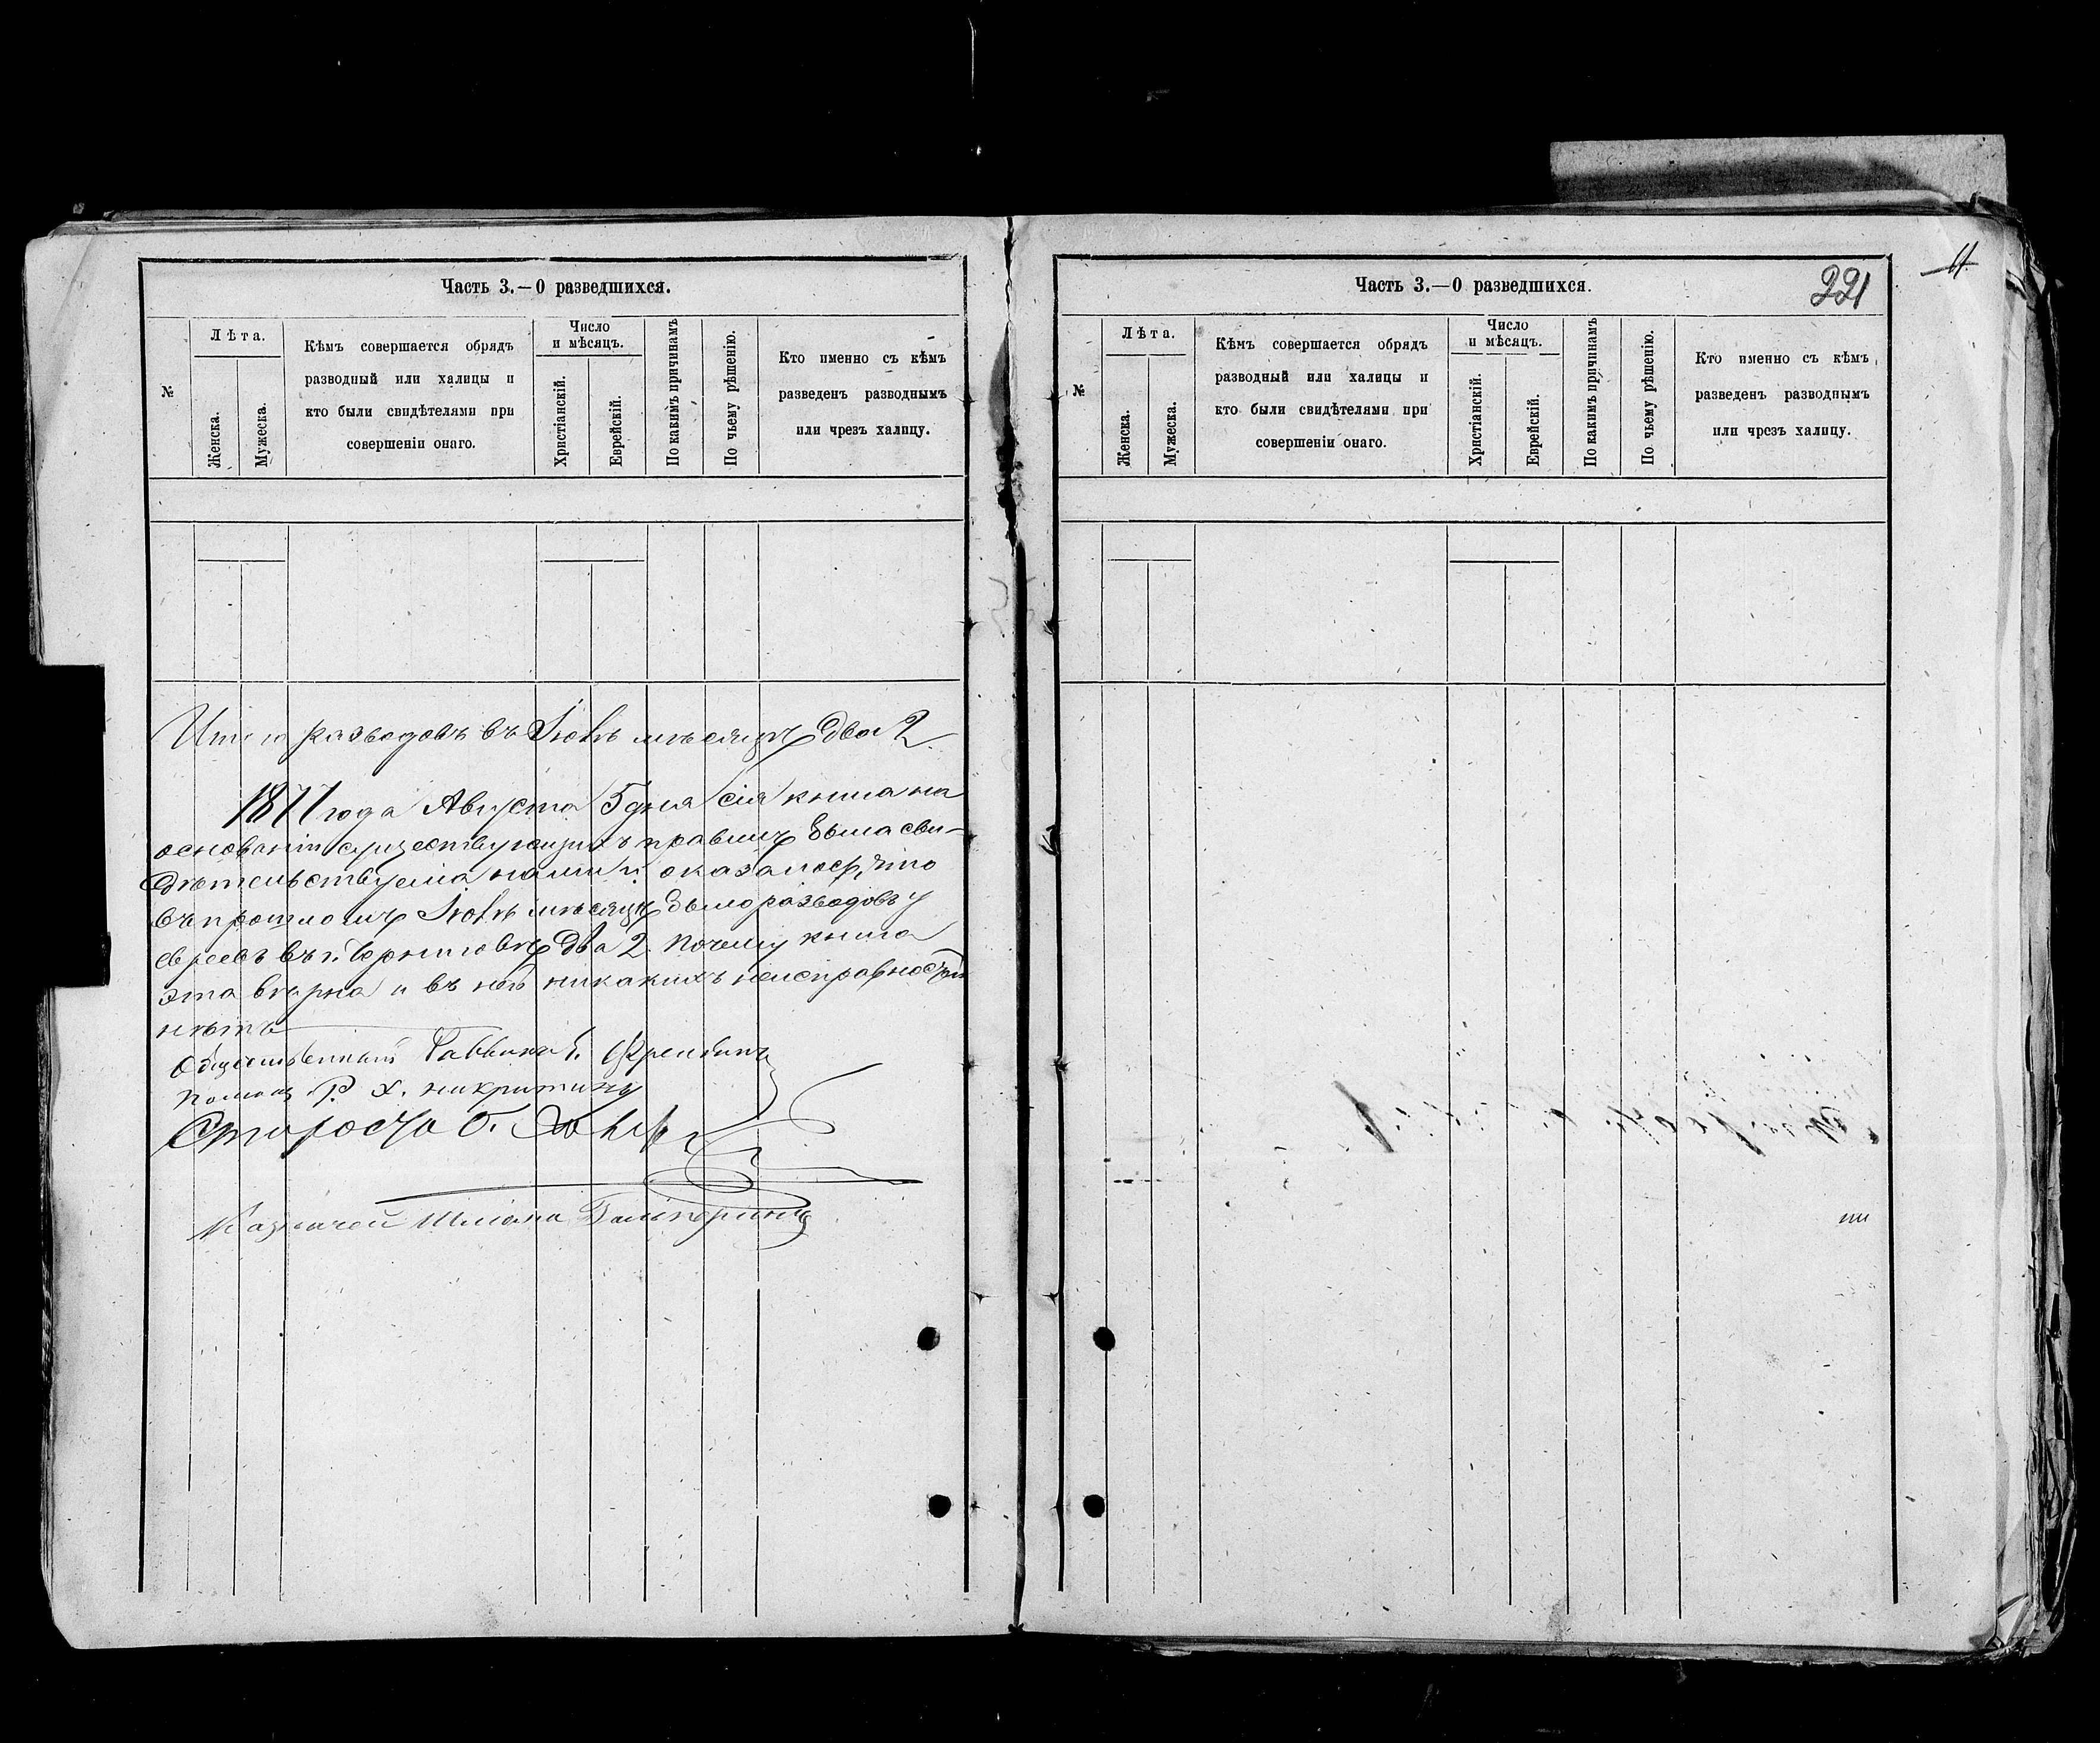 Часть 3.—О разведшихся.
№
Лѣта.
Женска.
Мужеска.
Кѣмъ совершается обрядъ
разводный или халицы и
кто были свидѣтелями при
совершеніи онаго.
Число
и мѣсяцъ.
Христіанскій.
Еврейскій.
По какимъ причинамъ
По чьему рѣшенію.
Кто именно съ кѣмъ
разведенъ разводнымъ
или чрезъ халицу.
Итого разводовъ въ Іюлѣ мѣсяцѣ два 2
1877 года Августа 5 дня сія книга на
основаніи существующихъ правилъ была сви-
дѣтельствуема нами и оказалось, что
въ прошломъ Іюлѣ мѣсяцѣ было разводовъ у
евреевъ въ г. Черниговѣ два 2 почему книга
эта вѣрна и въ ней никакихъ неисправностей
нѣтъ
Общественный Раввинъ
Помощ Р. Х. Никритинъ
Староста
Казначей Шлёма Гальперинъ
Часть 3.—О разведшихся.
221
11
№
Лѣта.
Женска.
Мужеска.
Кѣмъ совершается обрядъ
разводный или халицы и
кто были свидѣтелями при
совершеніи онаго.
Число
и мѣсяцъ.
Христіанскій.
Еврейскій.
По какимъ причинамъ
По чьему рѣшенію.
Кто именно съ кѣмъ
разведенъ разводнымъ
или чрезъ халицу.